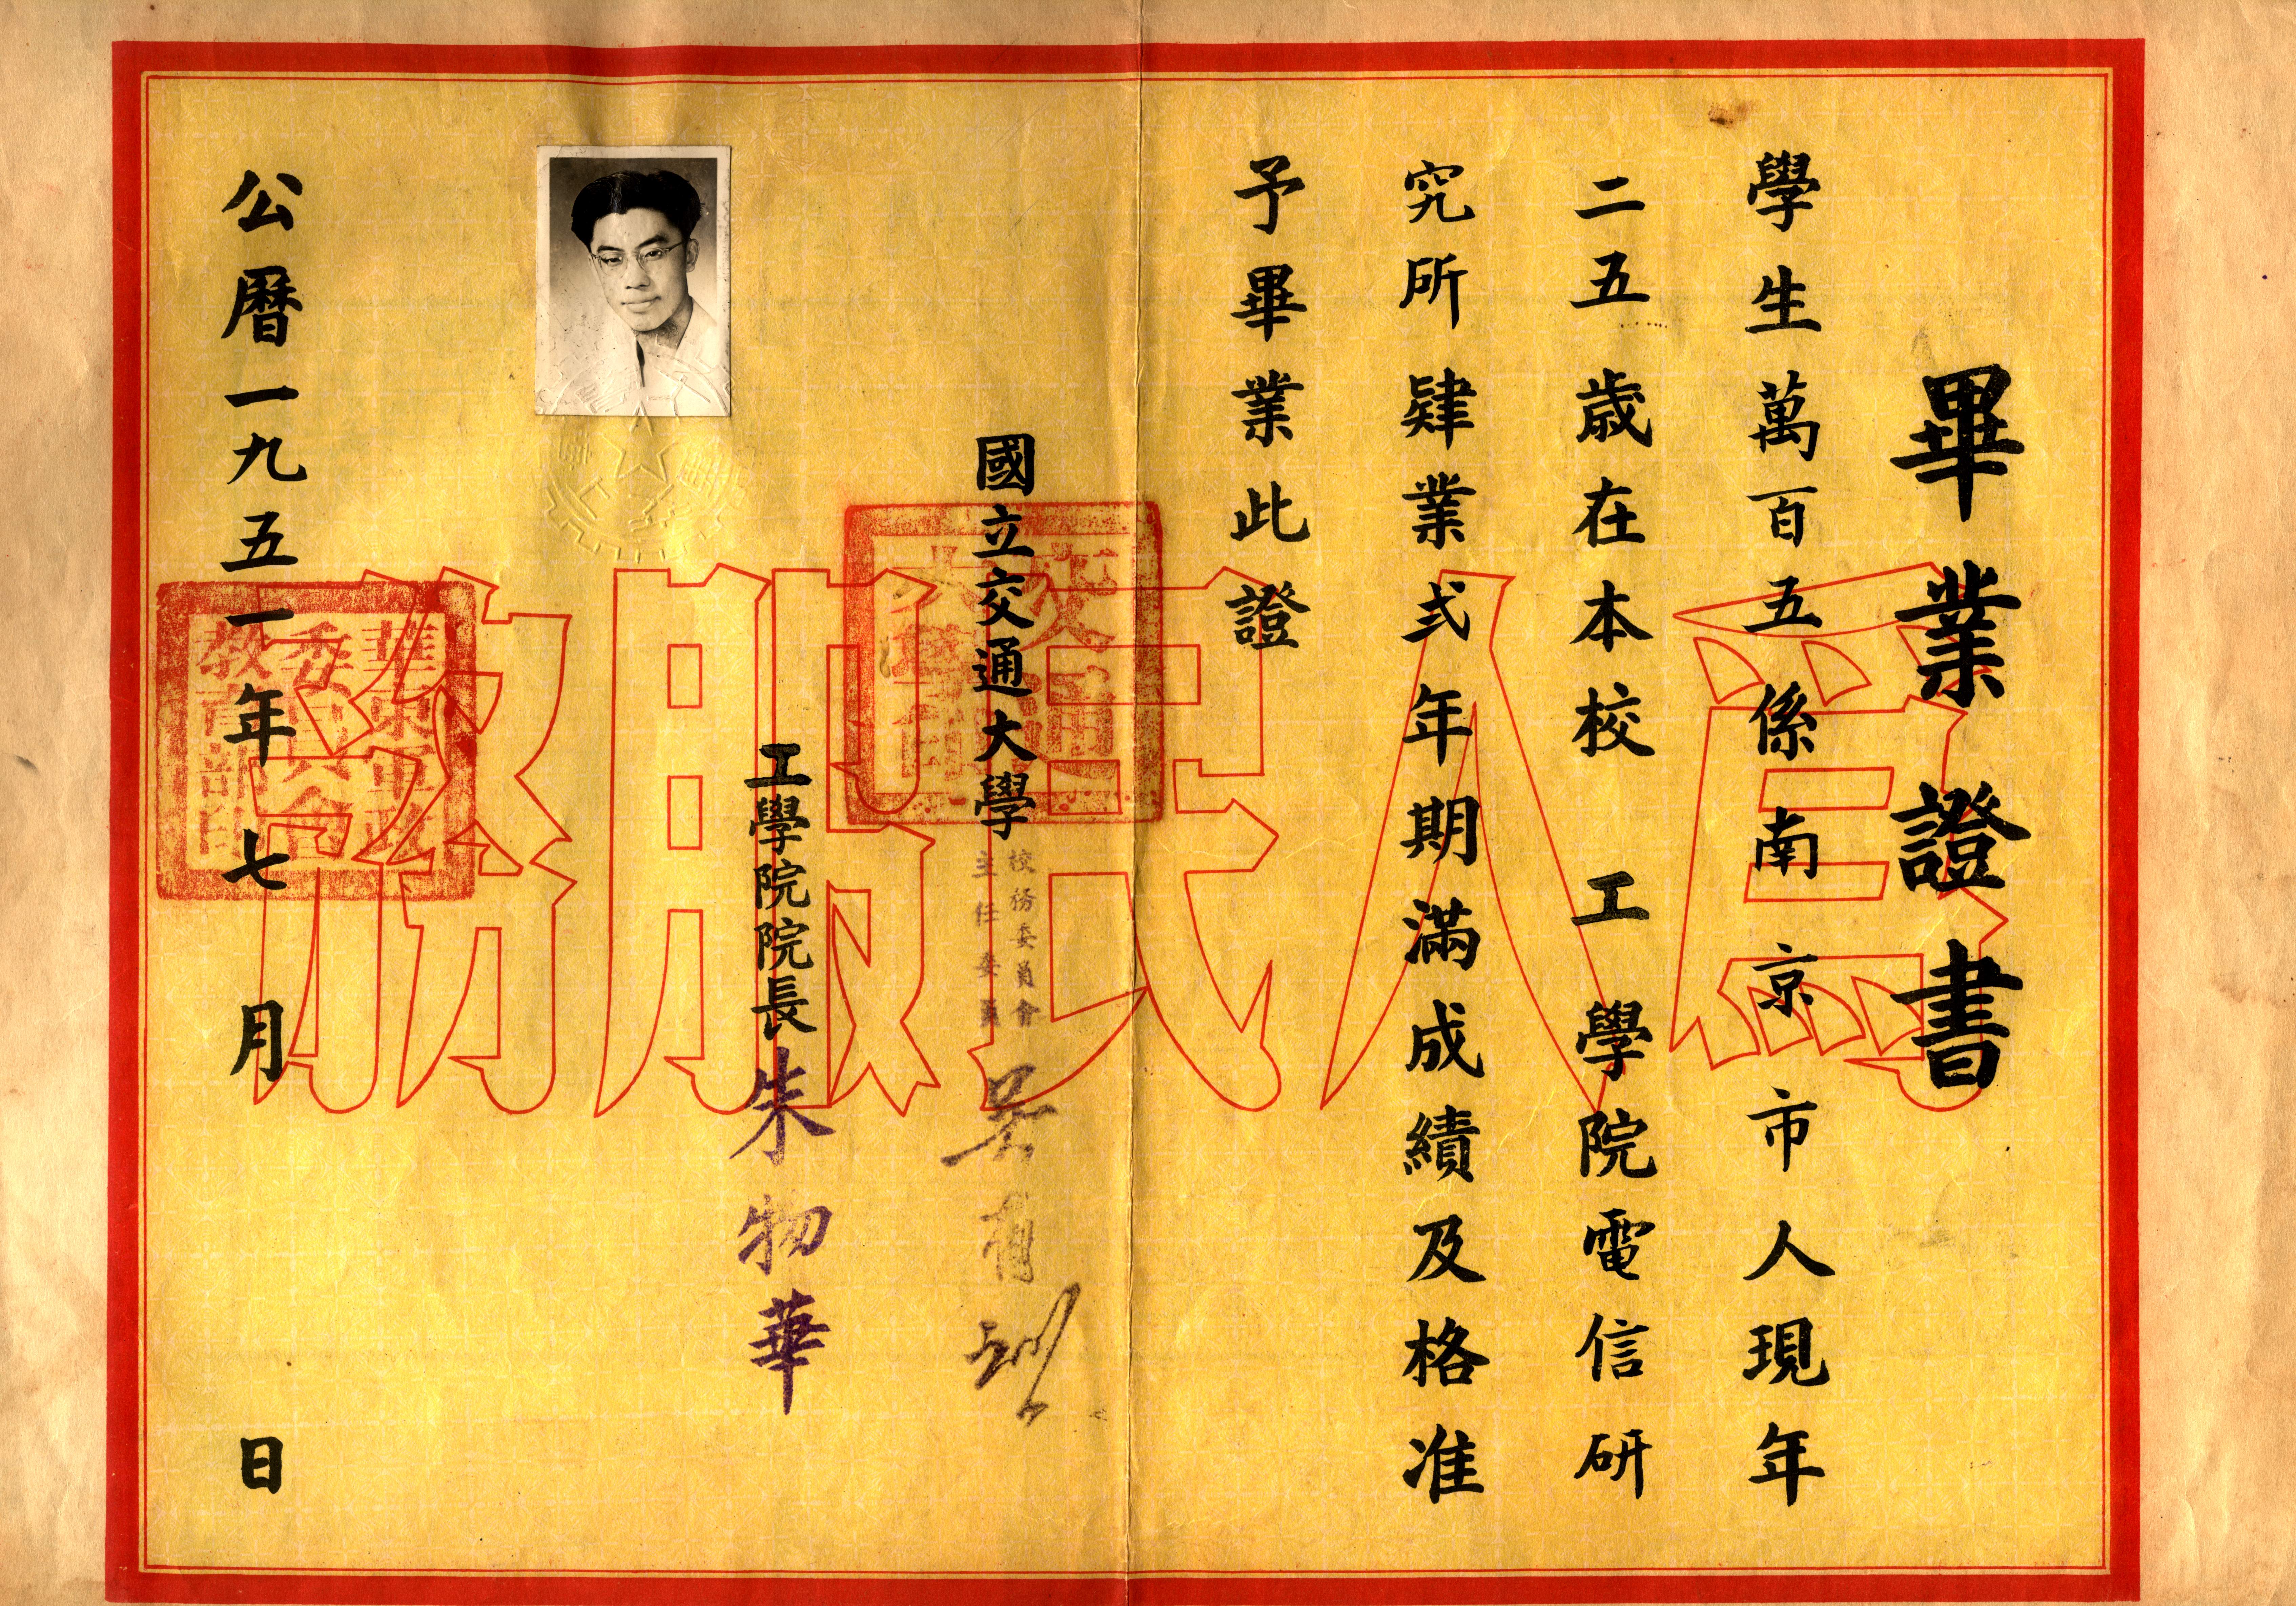 畢業證書
學生萬百五係南京市人現年
二五歲在本校 工學院電信研
究所肄業弍年期滿成績及格准
予畢業此證
國立交通大學
校務委員會
主任委員
吳有訓
工學院院長朱物華
公曆一九五一年七月 日
為人民服務
交通
大學印
華東軍政
委員會
教育部印